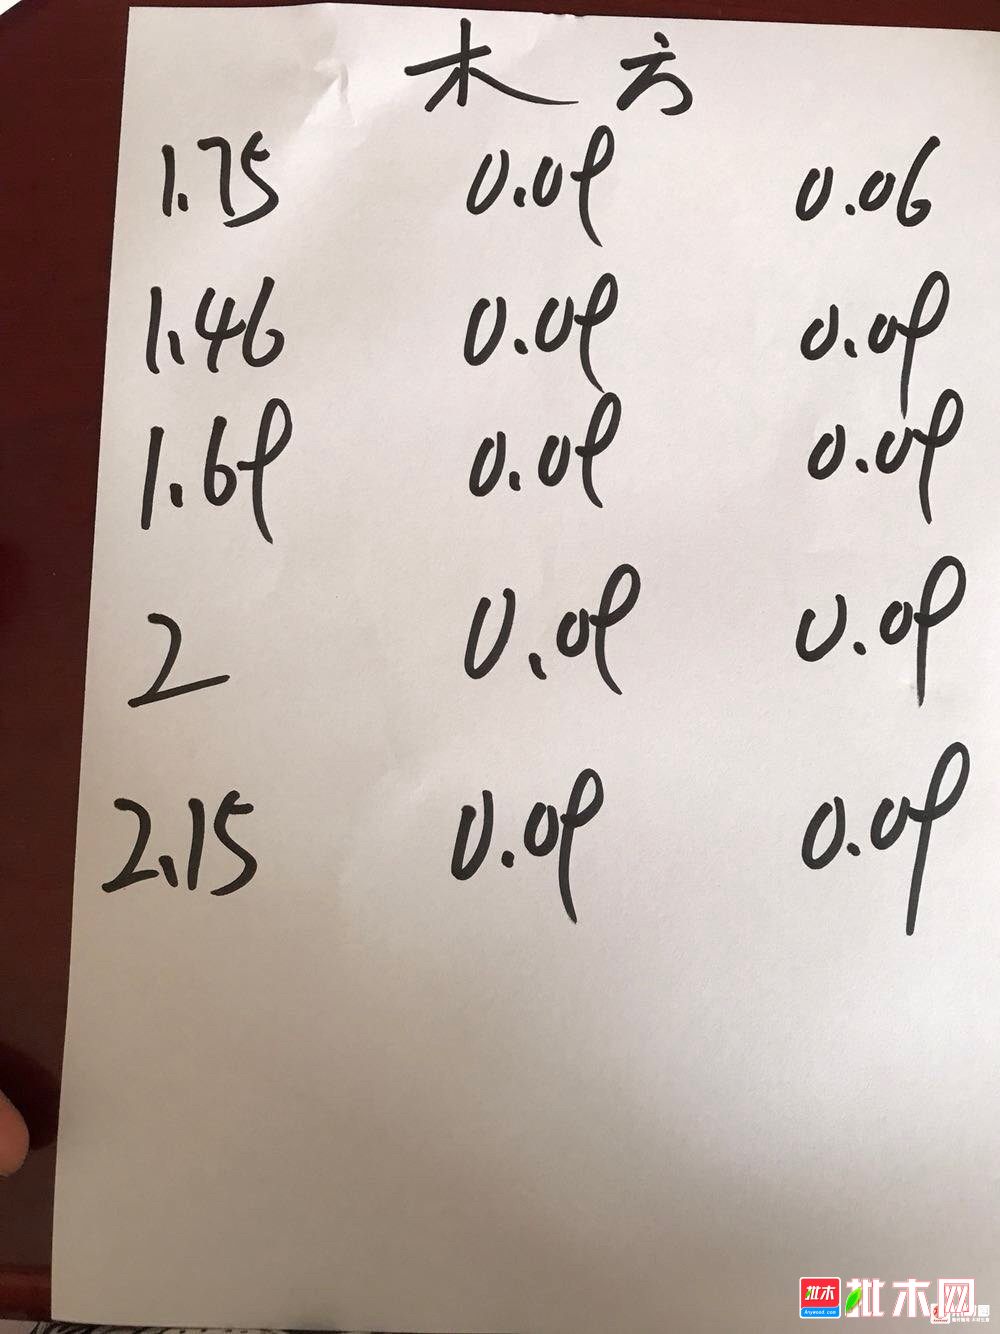 木方
1.75 0.09 0.06
1.46 0.09 0.09
1.69 0.09 0.09
2 0.09 0.09
2.15 0.09 0.09
批木 批木网
Anywood.com